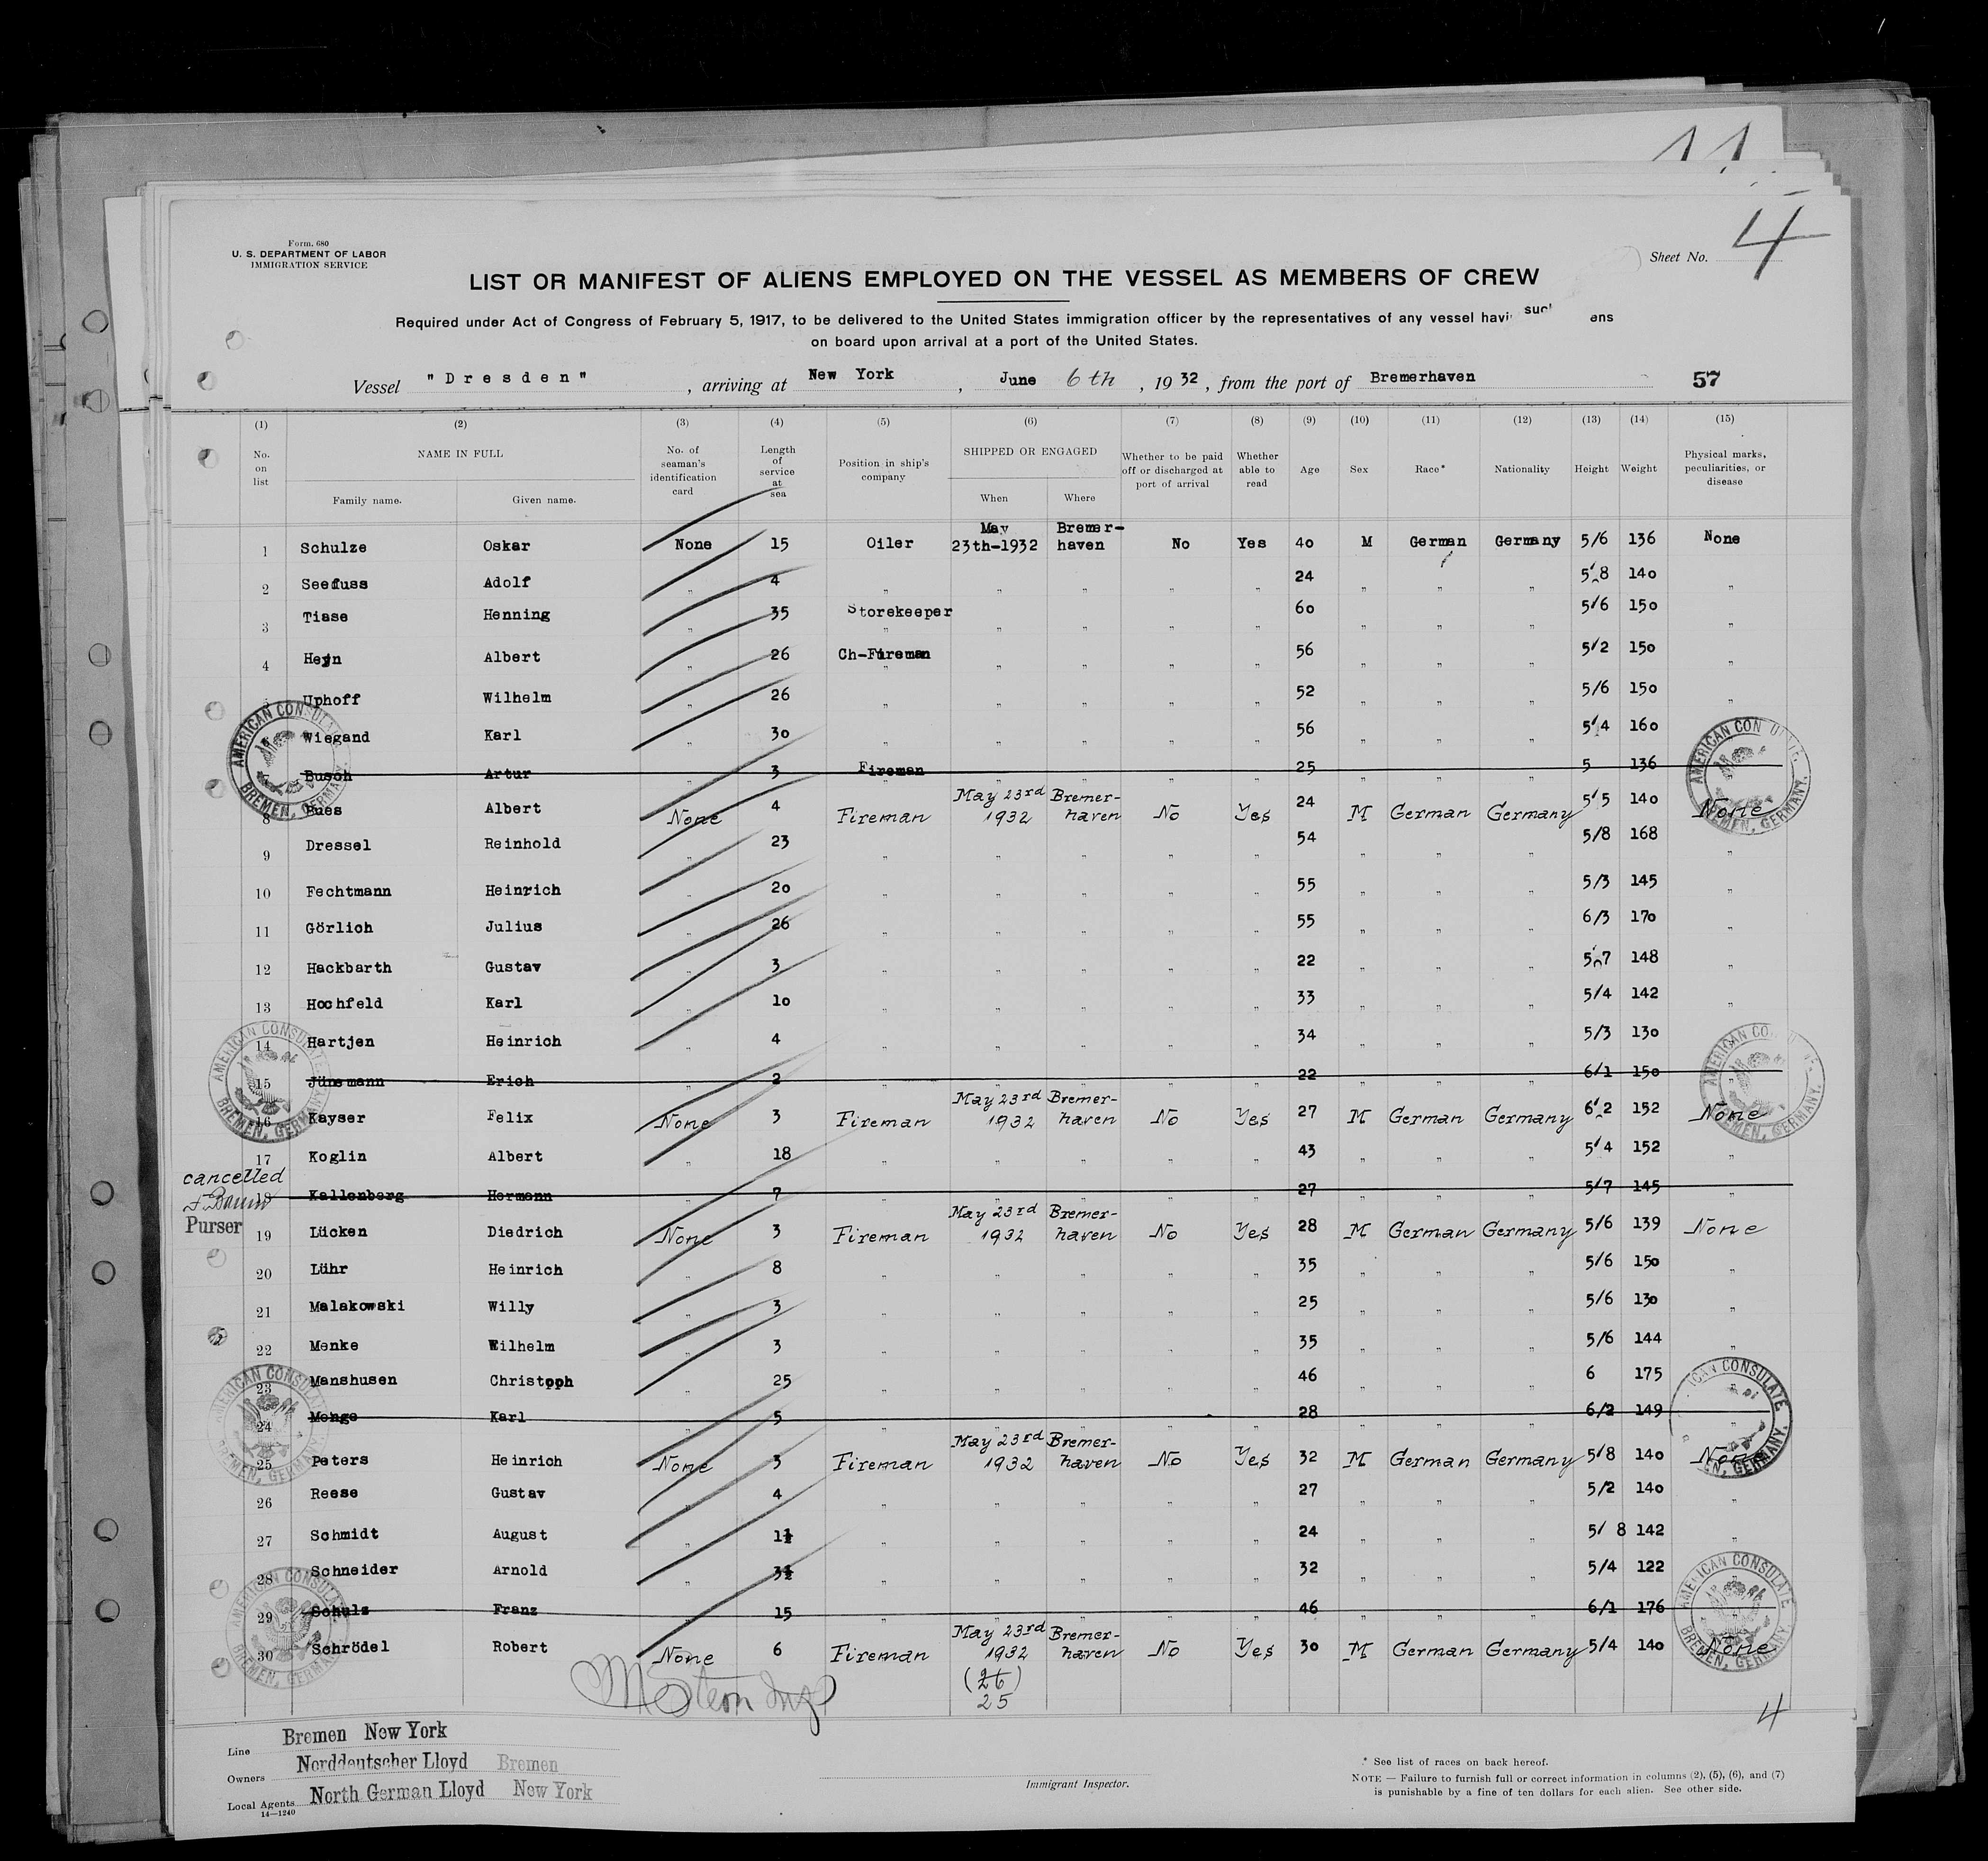 11
4
Form. 680
U. S. DEPARTMENT OF LABOR
IMMIGRATION SERVICE
Sheet No.
LIST OR MANIFEST OF ALIENS EMPLOYED ON THE VESSEL AS MEMBERS OF CREW
Required under Act of Congress of February 5, 1917, to be delivered to the United States immigration officer by the representatives of any vessel havi such ens
on board upon arrival at a port of the United States.
Vessel "Dresden" , arriving at New York , June 6th , 1932 , from the port of Bremerhaven 57
(1) (2) (3) (4) (5) (6) (7) (8) (9) (10) (11) (12) (13) (14) (15)
No. on list NAME IN FULL Family name. Given name. No. of seaman's identification card Length of service at sea Position in ship's company SHIPPED OR ENGAGED When Where Whether to be paid off or discharged at port of arrival Whether able to read Age Sex Race* Nationality Height Weight Physical marks, peculiarities, or disease
1 Schulze Oskar None 15 Oiler May 23th-1932 Bremer-haven No Yes 40 M German Germany 5/6 136 None
2 Seefuss Adolf " 4 " " " " " 24 " " " 5/8 140 "
3 Tiase Henning " 35 Storekeeper " " " " 60 " " " 5/6 150 "
4 Heyn Albert " 26 Ch-Fireman " " " " 56 " " " 5/2 150 "
5 Uphoff Wilhelm " 26 " " " " " 52 " " " 5/6 150 "
Wiegand Karl " 30 " " " " " 56 " " " 5/4 160
7 Busch Artur " 3 Fireman " " " " 25 " " " 5 136
8 Rues Albert None 4 Fireman May 23rd 1932 Bremer-haven No Yes 24 M German Germany 5/5 140 None
9 Dressel Reinhold " 23 " " " " " 54 " " " 5/8 168 "
10 Fechtmann Heinrich " 20 " " " " " 55 " " " 5/3 145 "
11 Görlich Julius " 26 " " " " " 55 " " " 6/3 170 "
12 Hackbarth Gustav " 3 " " " " " 22 " " " 5/7 148 "
13 Hochfeld Karl " 10 " " " " " 33 " " " 5/4 142 "
14 Hartjen Heinrich " 4 " " " " " 34 " " " 5/3 130 "
15 Jünemann Erich " 2 " " " " " 22 " " " 6/1 150 "
16 Kayser Felix None 3 Fireman May 23rd 1932 Bremer-haven No Yes 27 M German Germany 6/2 152 None
17 Koglin Albert " 18 " " " " " 43 " " " 5/4 152 "
cancelled
18 Kallenberg Hermann " 7 " " " " " 27 " " " 5/7 145 "
Purser
19 Lücken Diedrich None 3 Fireman May 23rd 1932 Bremer-haven No Yes 28 M German Germany 5/6 139 None
20 Lühr Heinrich " 8 " " " " " 35 " " " 5/6 150 "
21 Malakowski Willy " 3 " " " " " 25 " " " 5/6 130 "
22 Menke Wilhelm " 3 " " " " " 35 " " " 5/6 144 "
23 Manshusen Christoph " 25 " " " " " 46 " " " 6 175
24 Menge Karl " 5 " " " " " 28 " " " 6/2 149 "
25 Peters Heinrich None 3 Fireman May 23rd 1932 Bremer-haven No Yes 32 M German Germany 5/8 140 None
26 Reese Gustav " 4 " " " " " 27 " " " 5/2 140 "
27 Schmidt August " 1½ " " " " " 24 " " " 5/ 8 142 "
28 Schneider Arnold " 3½ " " " " " 32 " " " 5/4 122 "
29 Schulz Franz " 15 " " " " " 46 " " " 6/1 176 "
30 Schrödel Robert None 6 Fireman May 23rd 1932 Bremer-haven No Yes 30 M German Germany 5/4 140 None
(26)
25
4
AMERICAN CONSULATE BREMEN, GERMANY.
AMERICAN CONSULATE BREMEN, GERMANY.
AMERICAN CONSULATE BREMEN, GERMANY.
AMERICAN CONSULATE BREMEN, GERMANY.
AMERICAN CONSULATE BREMEN, GERMANY.
AMERICAN CONSULATE BREMEN, GERMANY.
AMERICAN CONSULATE BREMEN, GERMANY.
AMERICAN CONSULATE BREMEN, GERMANY.
Line Bremen New York
Owners Norddeutscher Lloyd Bremen
Local Agents North German Lloyd New York
14—1240
Immigrant Inspector.
* See list of races on back hereof.
NOTE — Failure to furnish full or correct information in columns (2), (5), (6), and (7)
is punishable by a fine of ten dollars for each alien. See other side.